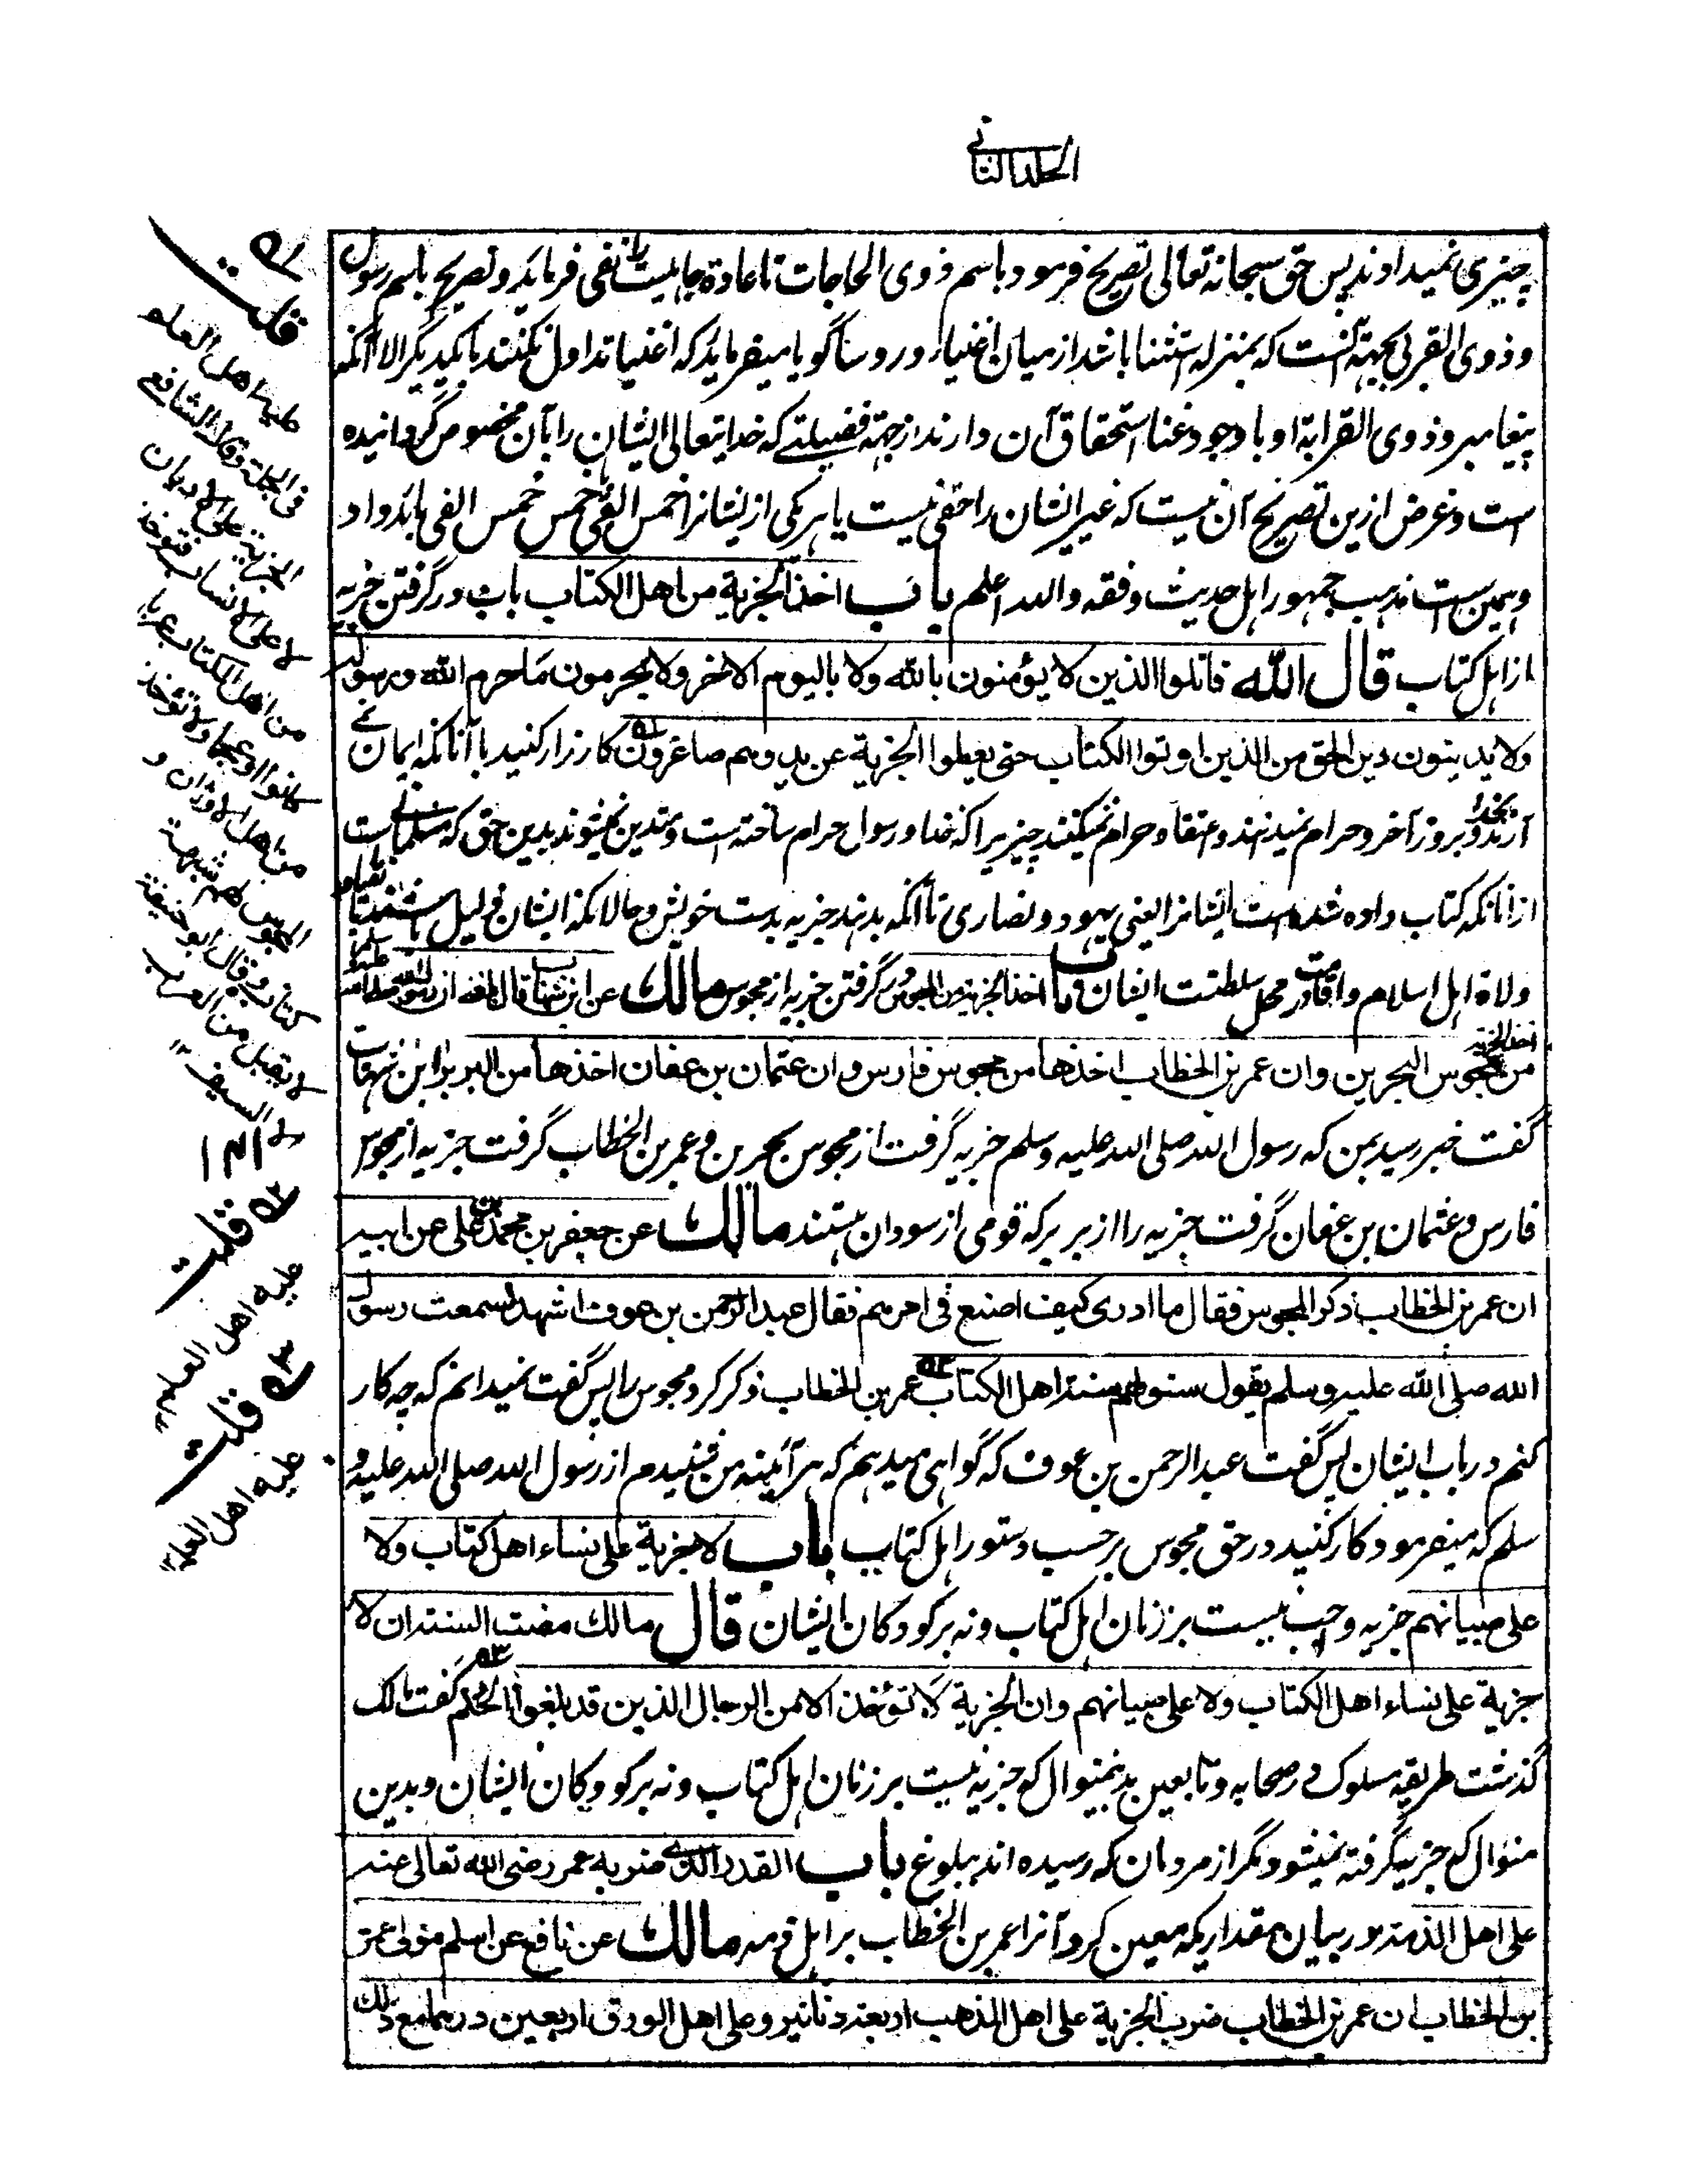 الجلد الثانی
چیزی نمیدادند پس حق سبحانه تعالی تصریح فرمود باسم ذوی الحاجات تا عادة جاهلیت را نفی فرماید و تصریح باسم رسول
و ذوی القربی بجهة آنست که بمنزله استثنا باشد از میان اغنیاء و روسا گویا میفرماید که اغنیا تداول نکنند با یکدیگر الا آنکه
پیغامبر و ذوی القرابة او با وجود غنا استحقاق آن دارند از جهة فضیلتے که خدایتعالی ایشان را بآن مخصوص گردانیده
است و غرض ازین تصریح آن نیست که غیر ایشان را حقی نیست یا هر یکی از ایشانرا خمس الفی یا خمس خمس الفی باید داد
و همین ست مذهب جمهور اهل حدیث و فقه والله اعلم باب اخذ الجزیة من اهل الکتاب باب در گرفتن جزیه
از اهل کتاب قال الله قاتلوا الذین لا یؤمنون بالله ولا بالیوم الاخر ولا یحرمون ما حرم الله ورسوله
ولا یدینون دین الحق من الذین اوتوا الکتاب حتی یعطوا الجزیة عن ید وهم صاغرون کارزار کنید با آنانکه ایمان نے
آرند بخدا و بروز آخر و حرام نمیدانند و اعتقاد حرام نمیکنند چیزیرا که خدا و رسول حرام ساخته است و متدین نمیشوند بدین حق که مسلمانے ست
از آنانکه کتاب داده شده است ایشانرا یعنی یهود و نصاری تا آنکه بدهند جزیه بدست خویش و حالانکه ایشان ذلیل
ولاة اهل اسلام و اقامت در محل سلطنت ایشان باب اخذ الجزیة من المجوس گرفتن جزیه از مجوس مالك عن ابن شهاب قال بلغنی ان رسول الله صلی الله علیه وسلم
اخذ الجزیة من مجوس البحرین وان عمر بن الخطاب اخذها من مجوس فارس وان عثمان بن عفان اخذها من البربر ابن شهاب
گفت خبر رسید بمن که رسول الله صلی الله علیه وسلم جزیه گرفت از مجوس بحرین و عمر بن الخطاب گرفت جزیه از مجوس
فارس و عثمان بن عفان گرفت جزیه را از بربر که قومی از سودان هستند مالك عن جعفر بن محمد بن علی عن ابیه
ان عمر بن الخطاب ذکر المجوس فقال ما ادری کیف اصنع فی امرهم فقال عبد الرحمن بن عوف اشهد لسمعت رسول
الله صلی الله علیه وسلم یقول سنوا بهم سنة اهل الکتاب عمر بن الخطاب ذکر کرد مجوس را پس گفت نمیدانم که چه کار
کنم در باب ایشان پس گفت عبد الرحمن بن عوف که گواهی میدهم که هر آئینه من شنیدم از رسول الله صلی الله علیه و
سلم که میفرمود کار کنید در حق مجوس بر حسب دستور اهل کتاب باب لا جزیة علی نساء اهل کتاب ولا
علی صبیانهم جزیه واجب نیست بر زنان اهل کتاب و نه بر کودکان ایشان قال مالك مضت السنة ان لا
جزیة علی نساء اهل الکتاب ولا علی صبیانهم وان الجزیة لا تؤخذ الا من الرجال الذین قد بلغوا الحلم گفت مالک
گذشت طریقه مسلوک در صحابه و تابعین بدینمنوال که جزیه نیست بر زنان اهل کتاب و نه بر کودکان ایشان و بدین
منوال که جزیه گرفته نمیشود مگر از مردان که رسیده اند ببلوغ باب القدر الذی ضربه عمر رضی الله تعالی عنه
علی اهل الذمة در بیان مقداریکه معین کرد آنرا عمر بن الخطاب بر اهل ذمه مالك عن نافع عن اسلم مولی عمر
بن الخطاب ان عمر بن الخطاب ضرب الجزیة علی اهل الذهب اربعة دنانیر وعلی اهل الورق اربعین درهما مع ذلك
قلت
علیه اهل العلم
فی الجملة وقال الشافعی
الجزیة علی الادیان
لا علی الانساب فتؤخذ
من اهل الکتاب عربا
کانوا او عجما ولا تؤخذ
من اهل الاوثان و
المجوس لهم شبهة
کتاب وقال ابو حنیفة
لا یقبل من العرب
الا السیف ١٢
قلت
علیه اهل العلم
قلت
علیه اهل العلم ١٢